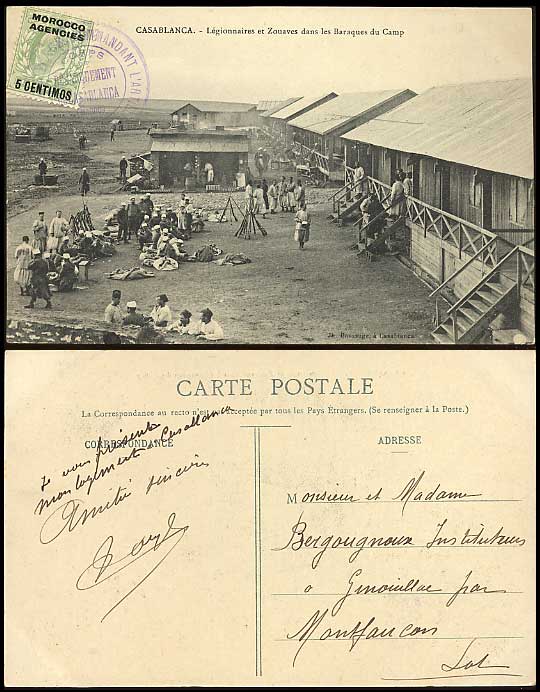 MOROCCO
AGENCIES
5 CENTIMOS
COMMANDANT L'AR
CASABLANCA
CASABLANCA. - Légionnaires et Zouaves dans les Baraques du Camp
à Casablanca
CARTE POSTALE
La Correspondance au recto n'est acceptée par tous les Pays Etrangers. (Se renseigner à la Poste.)
CORRESPONDANCE
ADRESSE
Je vous présente
mon logement à Casablanca
Amitié sincère
Monsieur et Madame
Bergougnoux Instituteurs
à Ginouillac par
Montfaucon
Lot